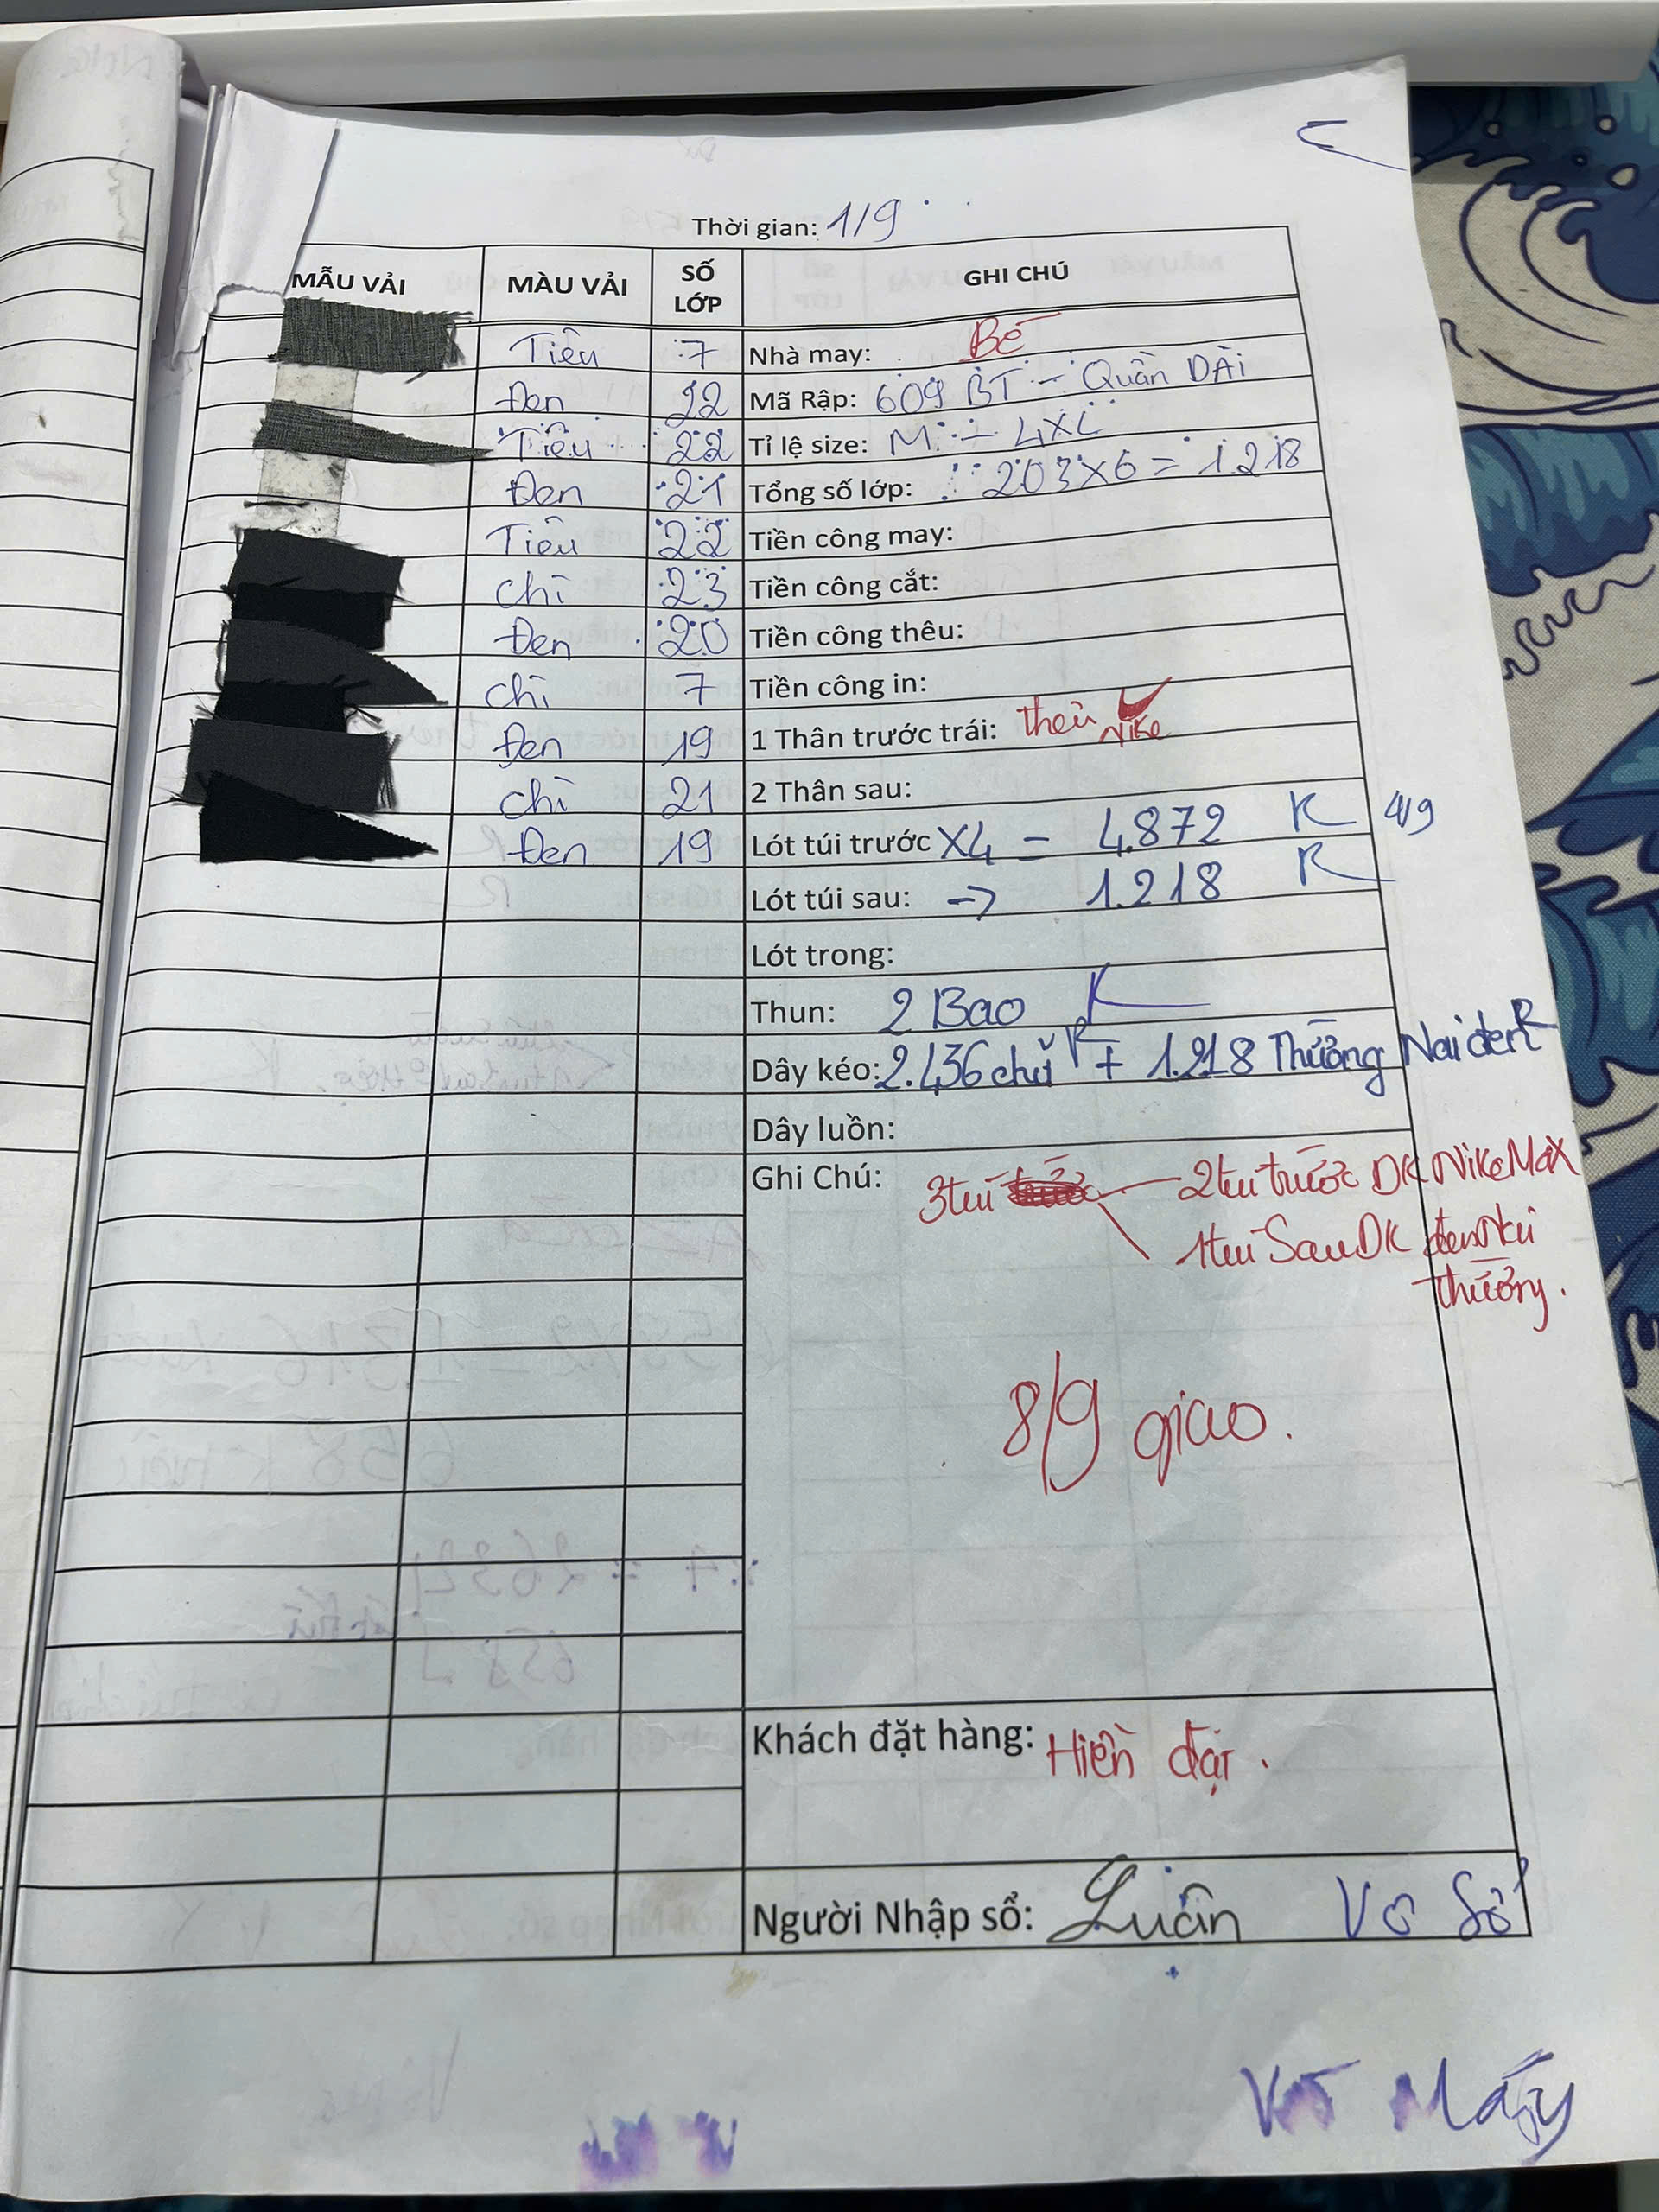 Thời gian: 1/9
MẪU VẢI MÀU VẢI SỐ LỚP GHI CHÚ
Tiêu 7 Nhà may: Bé
Đen 22 Mã Rập: 609 BT - Quần DÀi
Tiêu 22 Tỉ lệ size: M - 4XL
Đen 21 Tổng số lớp: 203x6 = 1.218
Tiêu 22 Tiền công may:
chì 23 Tiền công cắt:
Đen 20 Tiền công thêu:
chì 7 Tiền công in:
Đen 19 1 Thân trước trái: thêu Nike
chì 21 2 Thân sau:
Đen 19 Lót túi trước X4 = 4.872 K 4/9
Lót túi sau: -> 1.218 K
Lót trong:
Thun: 2 Bao K
Dây kéo: 2.436 chữ K + 1.218 Thường Nai đen K
Dây luồn:
Ghi Chú: 3 túi 2 túi trước DK Nike Max
1 túi Sau DK đen
thường.
8/9 giao.
Khách đặt hàng: Hiền đại.
Người Nhập sổ: Luân Vô Sổ
Vô Máy